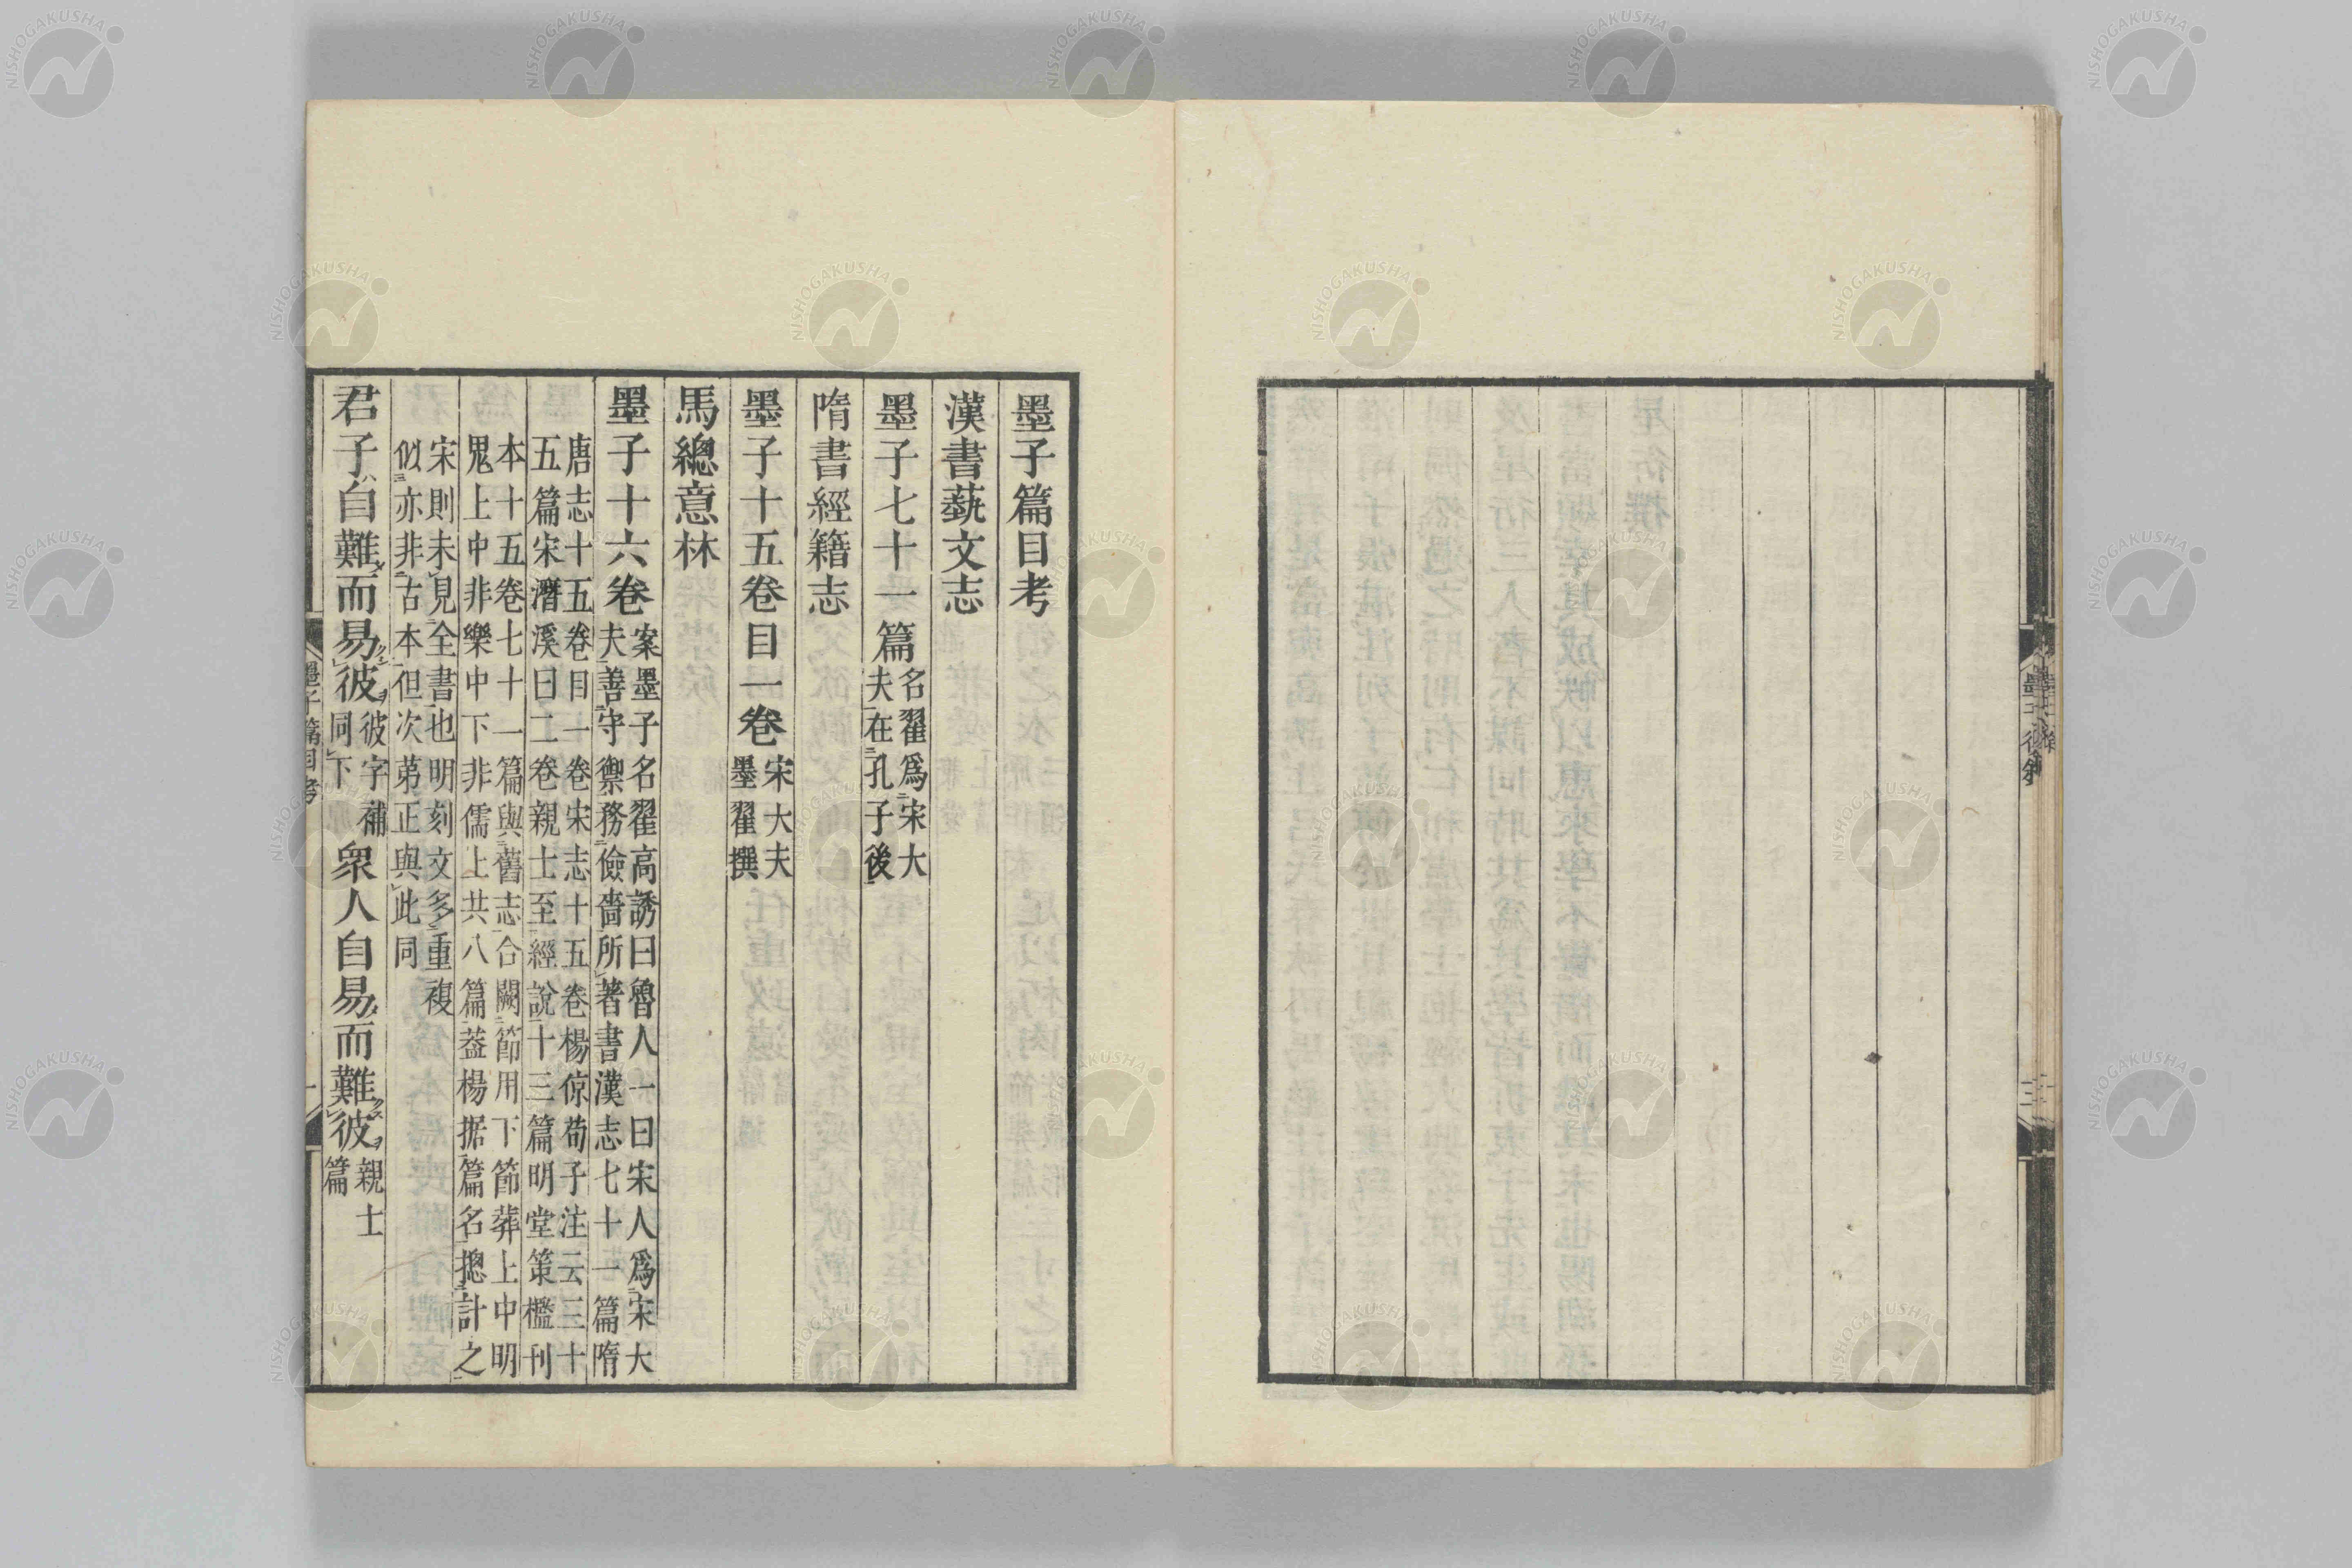 墨子篇目考
漢書蓺文志
墨子七十一篇名翟爲宋大夫在孔子後
隋書經籍志
墨子十五卷目一卷宋大夫墨翟撰
馬總意林
墨子十六卷案墨子名翟高誘曰魯人一曰宋人爲宋大夫善守禦務儉嗇所著書漢志七十一篇隋
唐志十五卷目一卷宋志十五卷楊倞荀子注云三十五篇宋潛溪曰二卷親士至經說十三篇明堂策檻刊
本十五卷七十一篇與舊志合闕節用下節葬上中明鬼上中非樂中下非儒上共八篇葢楊据篇名摠計之
宋則未見全書也明刻文多重複似亦非古本但次苐正與此同
君子自難而易彼彼字補同下衆人自易而難彼親士篇
墨子篇目考
NISHOGAKUSHA